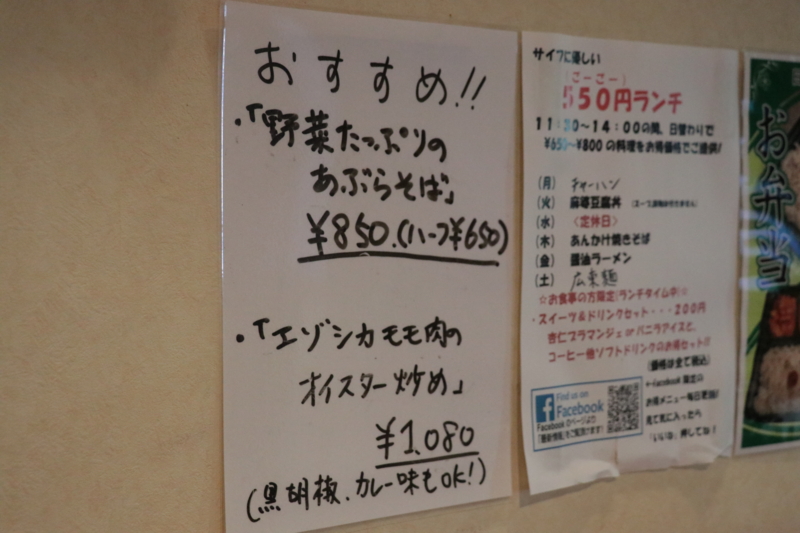 おすすめ!!
・「野菜たっぷりの
あぶらそば」
¥850.(ハーフ¥650)
・「エゾシカモモ肉の
オイスター炒め」
¥1,080
(黒胡椒、カレー味もOK!)
サイフに優しい
(ごーごー)
550円ランチ
11:30～14:00の間、日替わりで
¥650～¥800の料理をお得価格でご提供!
(月) チャーハン
(火) 麻婆豆腐丼
(水) <定休日>
(木) あんかけ焼きそば
(金) 醤油ラーメン
(土) 広東麺
☆お食事の方限定(ランチタイム中)☆
・スイーツ&ドリンクセット・・・200円
杏仁ブラマンジェorバニラアイスと、
コーヒー他ソフトドリンクのお得セット!!
(価格は全て税込)
Find us on
Facebook
Facebookのページより
「最新情報」をご覧頂けます!
←Facebook限定の
お得メニュー毎日更新!
見て気に入ったら
「いいね」押してね!
お弁当